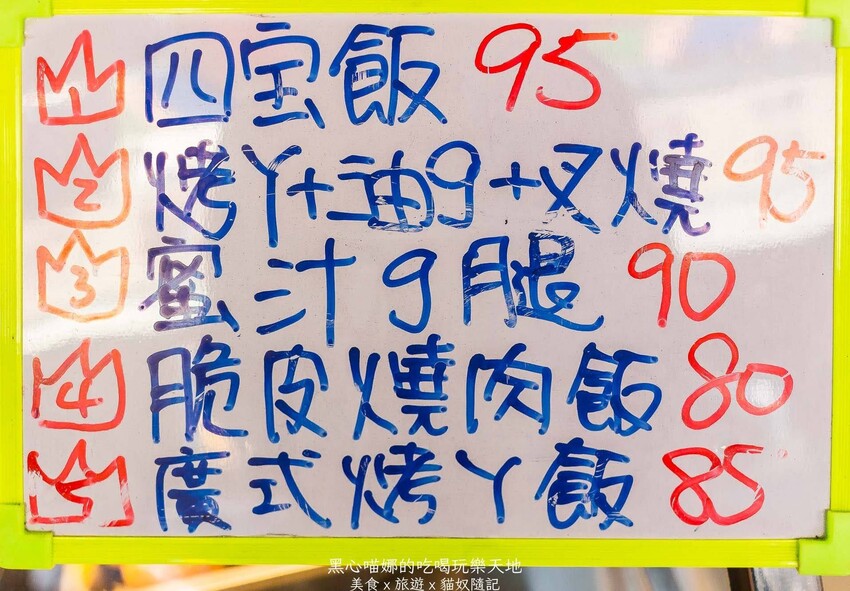 1 四宝飯 95
2 烤丫+油g+叉燒 95
3 蜜汁g腿 90
4 脆皮燒肉飯 80
5 廣式烤丫飯 85
黑心喵娜的吃喝玩樂天地
美食 x 旅遊 x 貓奴隨記